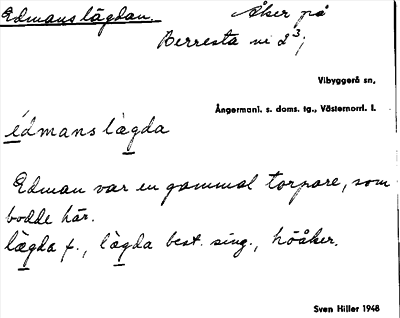 Edmanslägdan. Åker på
Berresta nr 2³;
Vibyggerå sn,
Ångermanl. s. doms. tg., Västernorrl. l.
édmanslàgda
Edman var en gammal torpare, som
bodde här.
lægda f., làgda best. sing., höåker.
Sven Hiller 1948